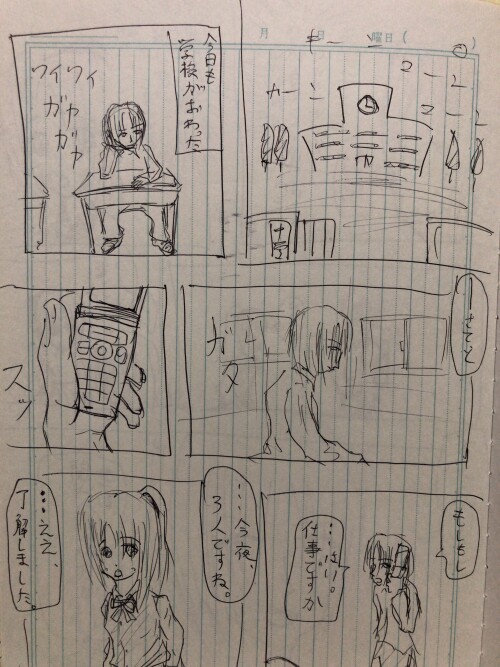 月 日 曜日( )
キーン
コーン
カーン
コーン
今日も
学校がおわった。
ワイワイ
ガヤ
ガヤ
…さてと
ガ
タ
スッ
もしもし
…はい。
仕事ですか
…今夜、
3人ですね。
…ええ、
了解しました。